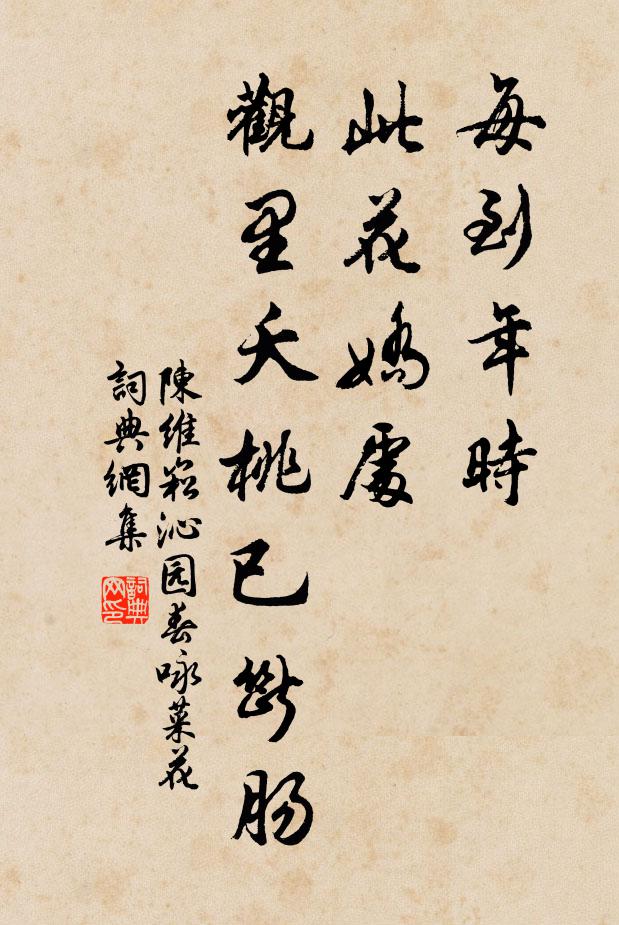 每到年時
此花嬌處
觀里夭桃已斷腸
陳維崧沁园春咏菜花
詞典網集
詞典网印